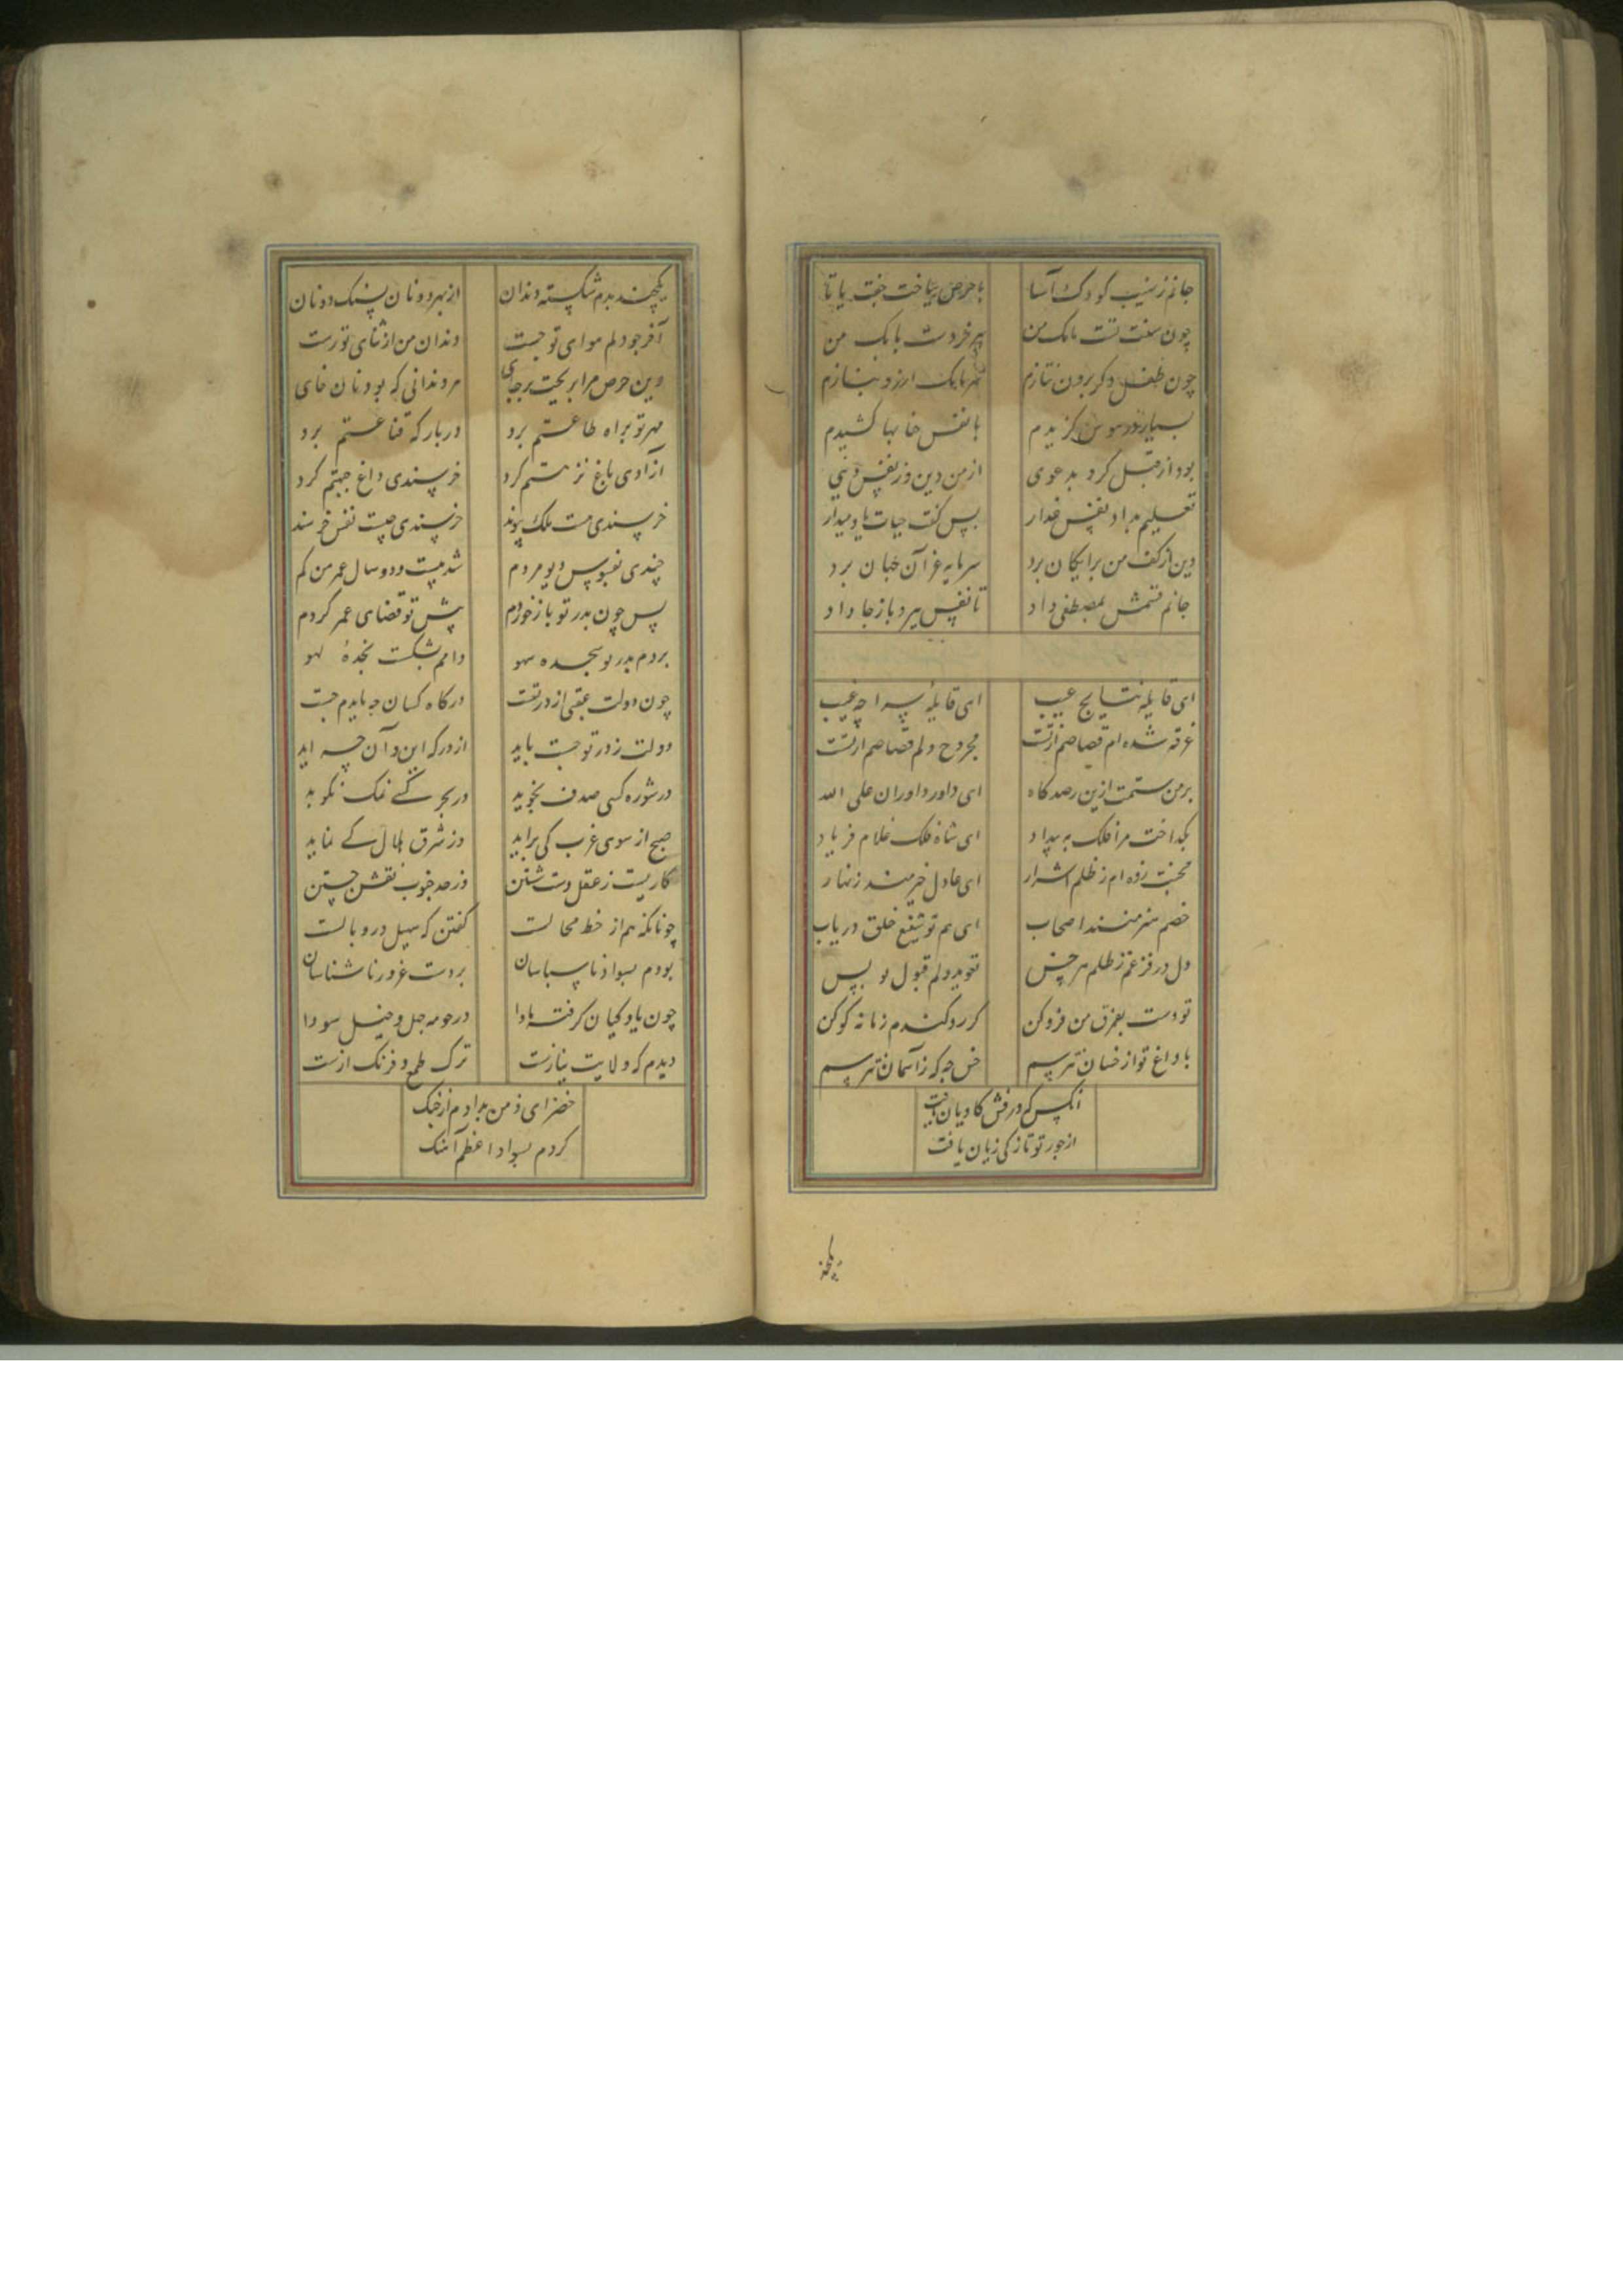 جانم زنهیب کودک آسا
با حرص بباخت جفت یا تا
چون سفت تست بابک من
پیر خردست بابک من
چون طفل دگر برون نتازم
بابک ارزو ببازم
بسیار در هوس گزیدم
با نفس خا بها کشیدم
بود از قبل کرد به دعوی
از من دین وز نفس دنیی
تعلیم بداد نفس غدار
پس گفت حیات یاد میدار
دین از کف من برایگان برد
سرمایه غر آن خبان برد
جانم قسمش بمصطفی داد
تا نفس ببرد باز جا داد
ای قابله نتایج غیب
ای قابله سراچه غیب
غرقه شده ام قصاصم ازتست
مجروح دلم قصاصم ازتست
بر من ستمت ازین رصد کاه
ای داور داوران علی الله
بکداخت مرا فلک به بیداد
ای شاه فلک غلام فریاد
محنت زده ام ز ظلم اشرار
ای عادل خرمند زنهار
خصم هنرمند اصحاب
ای هم تو شفیع خلق دریاب
دل در فزعم ز ظلم هر خس
تعوید دلم قبول تو بس
تو دست بفرق من فرو کن
کر رد کندم زمانه کو کن
با داغ تو از خسان نترسم
خس چه که ز آسمان نترسم
انکس که درفش کاویان یافت
از جور تو تازکی زیان یافت
یکچند
یکچند بدم شکسته دندان
از بهر دو نان بسنک دونان
آخر چو دلم هوای تو جست
دندان من از ثنای تو رست
وین حرص مرا بریخت برجای
هر دندانی که بود نان خای
مهر تو براه طاعتم برد
دربار که قناعتم برد
آزادی باغ نزهتم کرد
خرسندی داغ جبهتم کرد
خرسندی هست ملک پیوند
خرسندی چیست نفس خرسند
چندی بفسوس دیو مردم
شد بیست و دو سال عمر من کم
پس چون بدر تو باز خوردم
پیش تو قضای عمر کردم
بردم بدر تو سجده سهو
دامم بشکست بخده لهو
چون دولت عقبی از درتست
درکاه کسان چه بایدم جست
دولت ز در تو جست باید
از درکه این و آن چه اید
در شوره کسی صدف نجوید
در بحر کسی نمک نکوید
صبح از سوی غرب کی براید
وز شرق هلال کے نماید
کاریست ز عقل دست شستن
وز صد خوب نقش جستن
چونانکه هم از خط محالست
کفتن که سهیل در وبالست
بودم بسواد ناسپاسان
بر دست غرور ناشناسان
چون یاد کیان کرفته ماوا
در حومه جهل و خیل سودا
دیدم که ولایت نیازست
ترک طمع و فرنک ازست
خضرای دمن بدادم از چنک
کردم بسواد اعظم آهنک